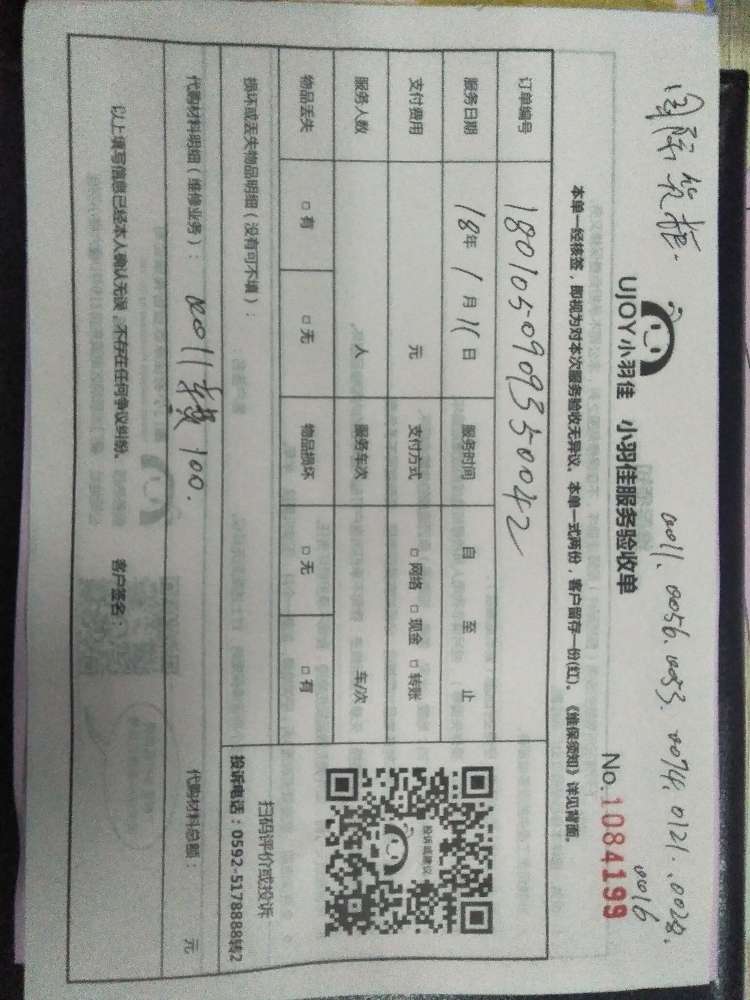 0011、0056、0053、0074、0121、0028、
0016
UJOY小羽佳 小羽佳服务验收单
No.1084199
本单一经核签，即视为对本次服务验收无异议。本单一式两份，客户留存一份(红)。《维保须知》详见背面。
订单编号 18010509093550042
服务日期 18年 1月 16日 服务时间 自 至 止
支付费用 元 支付方式 □网络 □现金 □转账
服务人数 人 服务车次 车/次
物品丢失 □有 □无 物品损坏 □无 □有
损坏或丢失物品明细（没有可不填）：
投诉或建议
扫码评价或投诉
投诉电话：0592-5178888转2
代购材料明细（维修业务）： 0011 100.
代购材料总额： 元
以上填写信息已经本人确认无误，不存在任何争议纠纷。 客户签名：